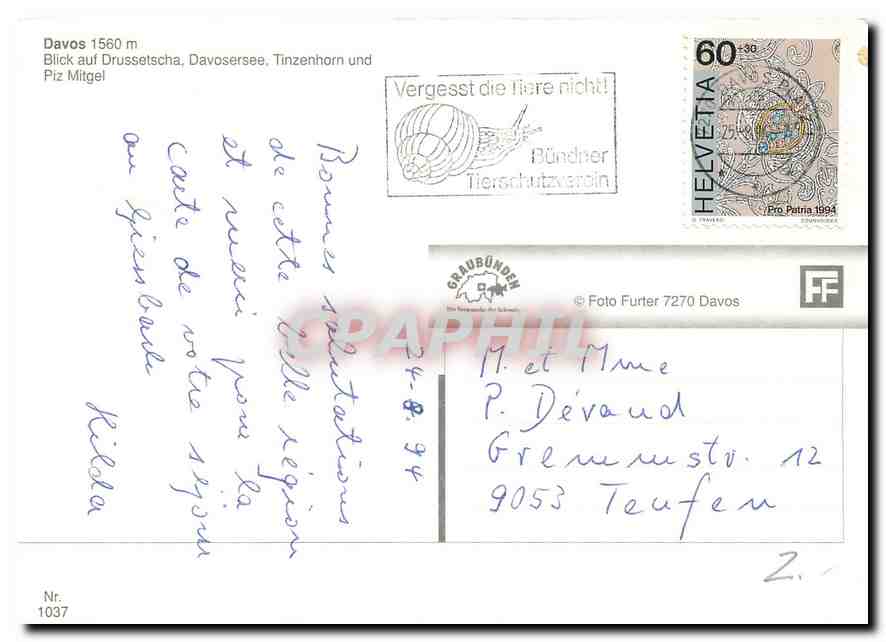 Davos 1560 m
Blick auf Drussetscha, Davosersee, Tinzenhorn und
Piz Mitgel
Vergesst die Tiere nicht!
Bündner
Tierschutzverein
60+30
HELVETIA
Pro Patria 1994
COURVOISIER
GRAUBÜNDEN
Die Ferienecke der Schweiz
© Foto Furter 7270 Davos
FF
CPAPHIL
24-8.94
Bonnes salutations
de cette belle région
et merci pour la
carte de votre séjour
au Giessbach
Hilda
M. et Mme
P. Dévaud
Gremmstr. 12
9053 Teufen
2.-
Nr.
1037